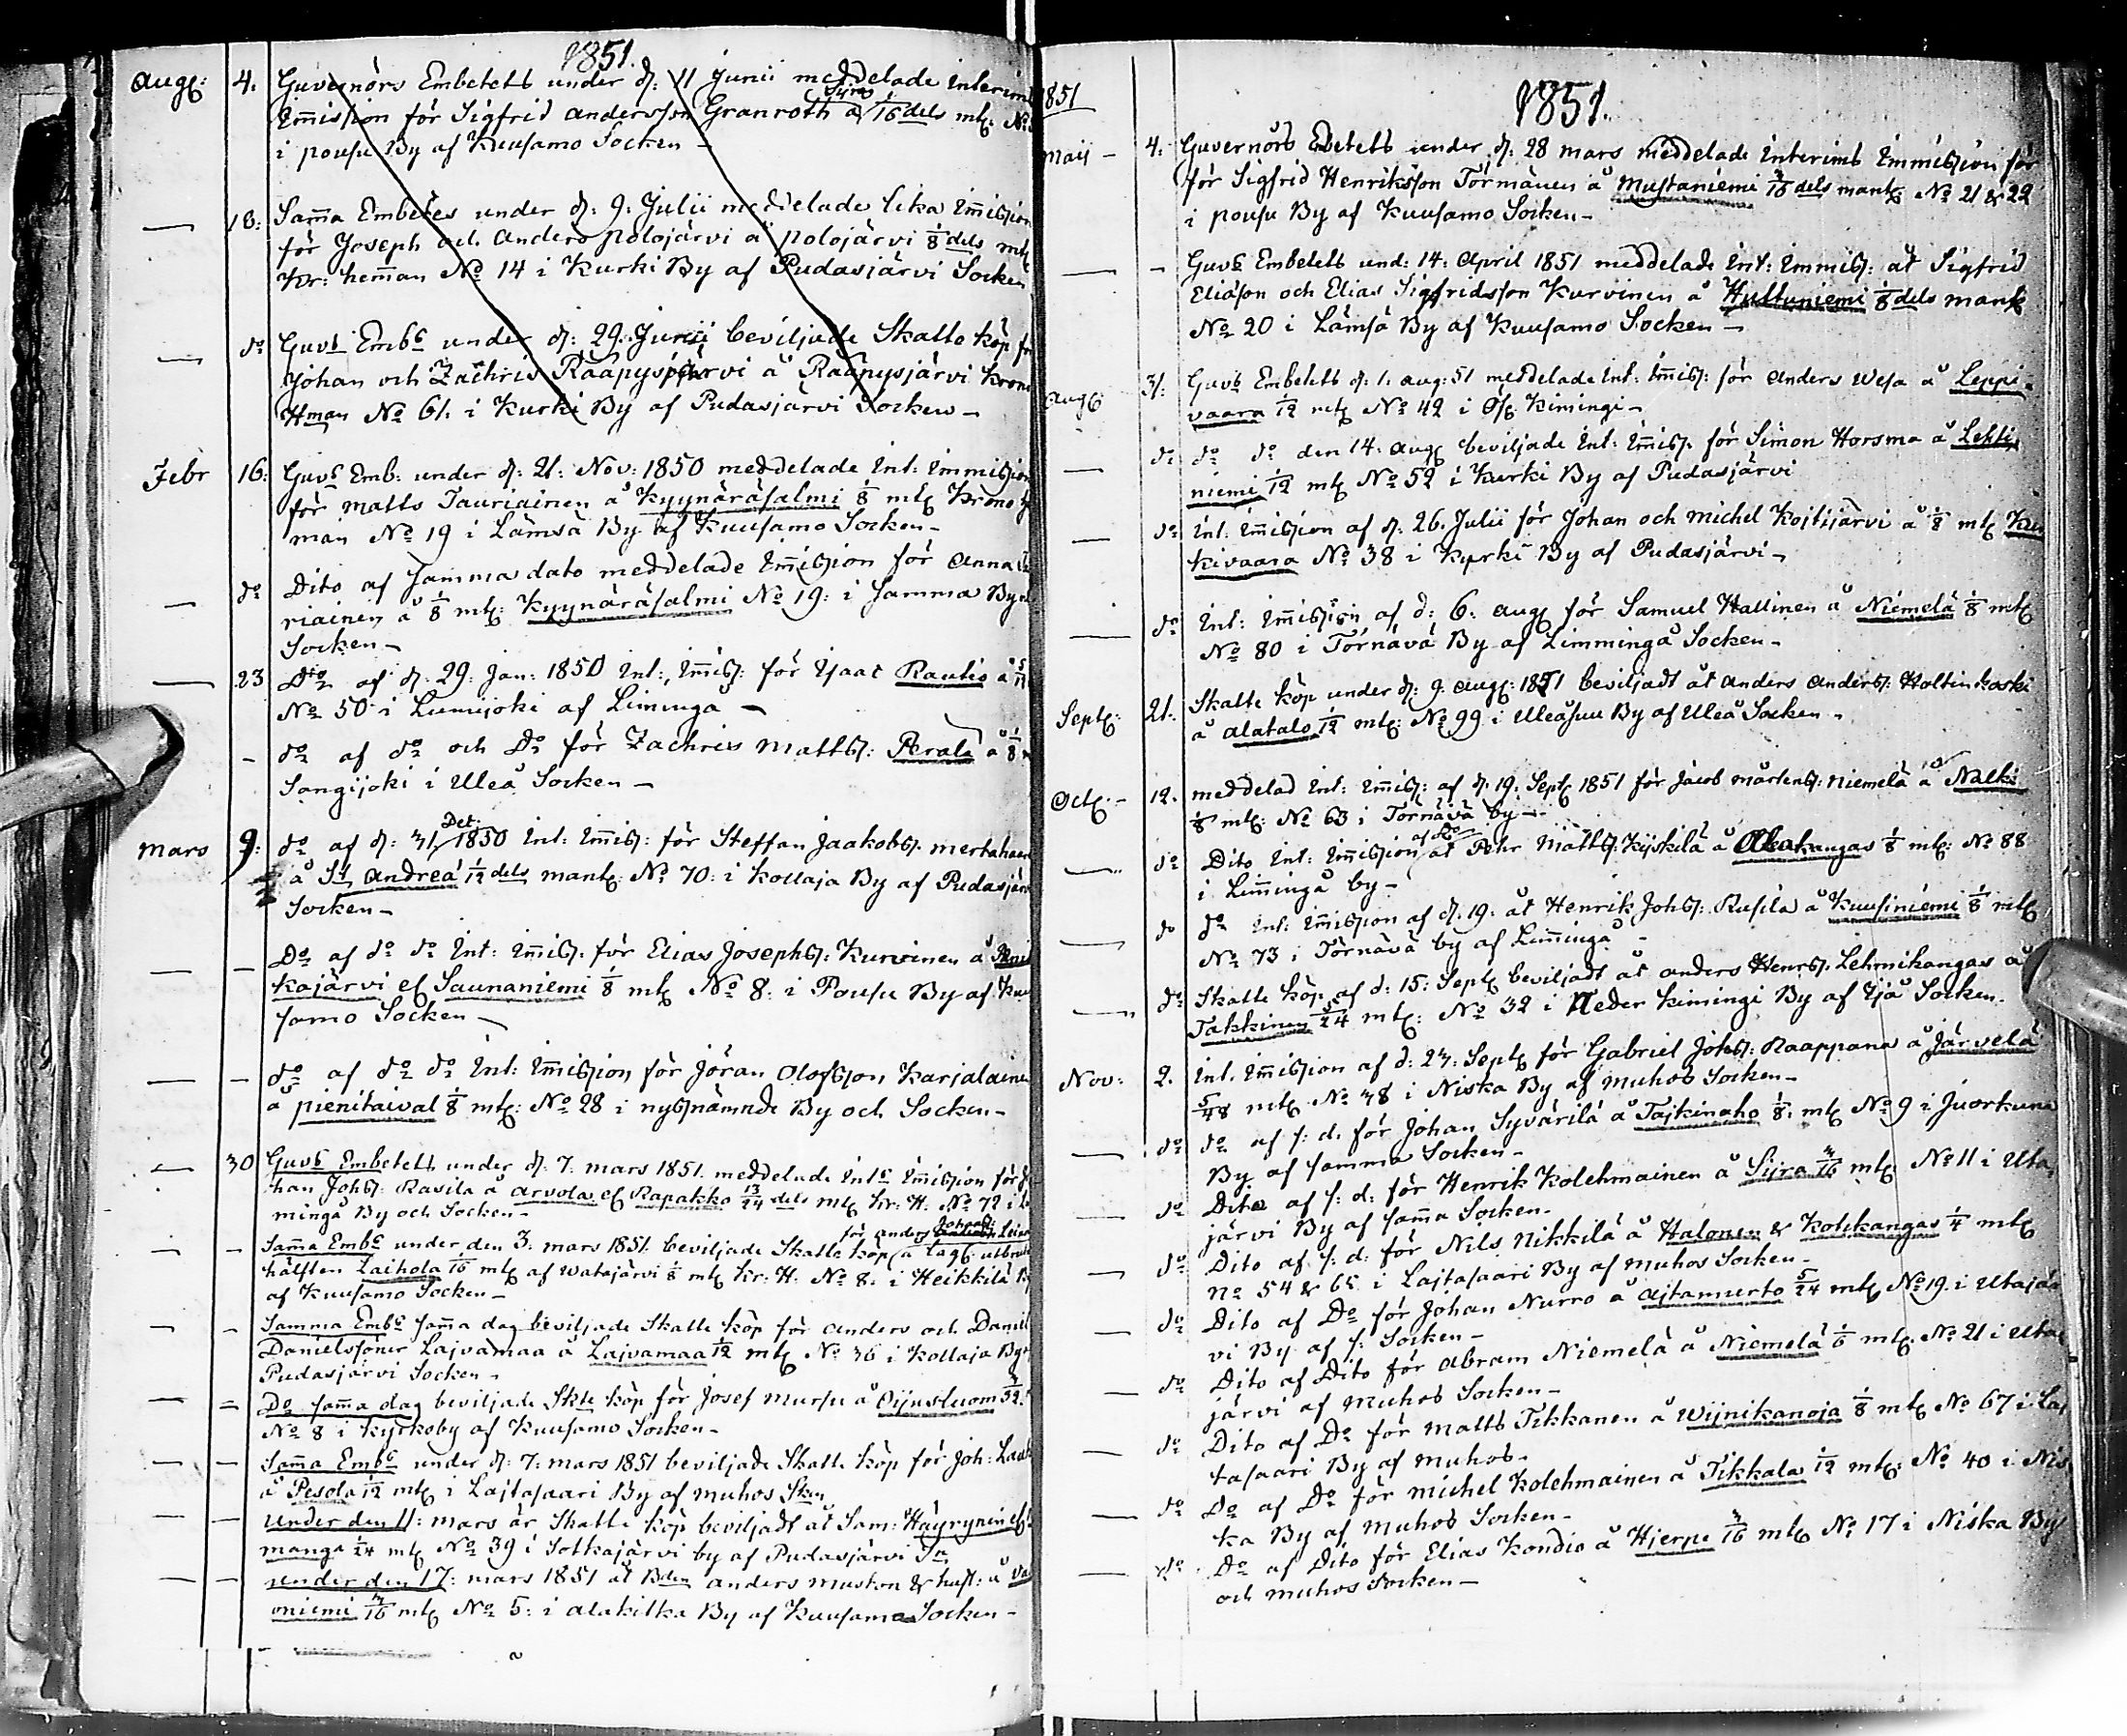 1851.
Aug: 4. Guvernörs Embetets under d: 11 Junii meddelade interims
Syno
Immission för Sigfrid Andersson Granroth å 1/16 dels mtl: No
i Pousu By af Kuusamo Socken –
— 18: Samma Embetes under d: 9. Julii meddelade lika Immission
för Joseph och Anders Polojärvi å Polojärvi 1/8 dels mtl
Kr: hemman No 14 i Kurki By af Pudasjärvi Socken
— do Guvs Embe under d: 29. Junii beviljade Skatte köp för
Johan och Zachris Räapysjärvi å Räapysjärvi Krono
Hman No 61. i Kurki By af Pudasjärvi Socken –
Febr 16: Guvs Emb: under d: 21: Nov: 1850 meddelade Int: Immission
för Matts Tauriainen å Kyynäräsalmi 1/8 mtl Krono he
man No 19 i Lämsä By af Kuusamo Socken –
— do Dito af samma dato meddelade Immission för Anna
riainen å 1/8 mtl: Kyynäräsalmi No 19: i samma By
Socken –
— 23 Dto af d: 29: Jan: 1850 Int: Immiss: för Isaac Rautio å
No 50 i Lumijoki af Liminga –
– do af do och Do för Zachris Mattss: Perälä å 1/8
Sangijoki i Uleå Socken –
Dec:
Mars 9: do af d: 31, 1850 Int: Immiss: för Steffan Jaakobss. Mertahaara
å St Andrea 1/12 dels mantl: No 70: i Kollaja By af Pudasjärvi
Socken –
— – Do af do do Int: Immiss: för Elias Josephss: Kurvinen å
kajärvi el Saunaniemi 1/8 mtl No 8: i Pousu By af Kuu
samo Socken –
— – do af do do Int: Immission för Jöran Olofsson Karjalainen
å Pienitaival 1/8 mtl: No 28 i nyssnämnde By och Socken –
— 30 Guvs Embetets under d: 7. Mars 1851. meddelade Inte Immission för Jo
han Johss: Rasila å Arvola el Rapakko 13/24 dels mtl Kr: H. No 72 i Li
minga By och Socken –
för Anders Johanss:
– – Samma Embe under den 3: Mars 1851. beviljade Skatte köp å lagl: utbrutne
hälften Laihola 1/16 mtl af Watajärvi 1/8 mtl Kr: H: No 8: i Heikkilä By
af Kuusamo Socken –
– – Samma Embe samma dag beviljade Skatte köp för Anders och Daniel
Danielssöner Lajvamaa å Lajvamaa 1/12 mtl No 36 i Kollaja By
Pudasjärvi Socken –
— – Do samma dag beviljade Skte köp för Josef Mursu å Oijusluoma 3/32
No 8 i Kyrkoby af Kuusamo Socken –
– – Samma Embe under d: 7: Mars 1851 beviljade Skatte köp för Joh:
å Pesola 1/12 mtl i Lajtasaari By af Muhos Sken
— – Under den 11: Mars är Skatte köp beviljadt åt Sam: Häyrynen el
manga 1/24 mtl No 39 i Sotkajärvi by af Pudasjärvi Sn
— – Under den 17: Mars 1851 åt Bden Anders Muston & hust: å
oniemi 3/16 mtl No 5: i Alakitka By af Kuusamo Socken –
1851
1851.
Maij – 4: Guvernörs Embetets under d: 28 Mars meddelade Interims Immission för
för Sigfrid Henriksson Törmänen å Mustaniemi 3/16 dels mantl No 21 & 22
i Pousu By af Kuusamo Socken –
— – Guvs Embetets und: 14: April 1851 meddelade Int: Immiss: åt Sigfrid
Eliasson och Elias Sigfridsson Kurvinen å Huttuniemi 1/8 dels mantl
No 20 i Lämsä By af Kuusamo Socken –
Aug. 31. Guvs Embetets d: 1. Aug: 51 meddelade Int: Immiss: för Anders Wesa å Leppi-
vaara 1/12 mtl No 42 i Öf: Kimingi –
— do do do den 14. Aug beviljade Int: Immiss. för Simon Horsma å Lehti
niemi 1/12 mtl No 52 i Kurki By af Pudasjärvi
— do Int. Immission af d: 26. Julii för Johan och Michel Kojtijärvi å 1/8 mtl
kivaara No 38 i Kurki By af Pudasjärvi –
— do Int: Immission af d: 6: Aug för Samuel Hallinen å Niemelä 1/8 mtl
No 80 i Törnävä By af Limminga Socken –
Sept: 21. Skatte köp under d: 9. Aug: 1851 beviljadt åt Anders Anderss: Holtinkoski
å Alatalo 1/12 mtl: No 99 i Uleåsuu By af Uleå Socken –
Oct. – 12. meddelad Int: Immiss: af d: 19. Sept 1851 för Jacob Mårtenss: Niemelä å Nalki
1/8 mtl: No 63 i Törnävä by –
af do
— do Dito Int: Immission åt Pehr Mattss: Kyskilä å Alakangas 1/8 mtl: No 88
i Limminga by –
— do do Int: Immission af d. 19. åt Henrik Johss: Rusila å Kuusiniemi 1/8 mtl
No 73 i Törnävä by af Limminga –
— do Skatte köp af d: 15: Sept beviljadt åt Anders Henrss. Lehmikangas å
Takkinen 5/24 mtl: No 32 i Neder Kimingi By af Ijå Socken.
Nov: 2. Int. Immission af d: 23: Sept för Gabriel Johss: Raappana å Järvelä
5/48 mtl No 38 i Niska By af Muhos Socken –
do do af s: d. för Johan Syvärilä å Tajkinaho 1/8. mtl No 9 i Juorkuna
By af samma Socken –
— do Dito af s: d: för Henrik Kolehmainen å Sijra 3/16 mtl No 11 i Uta
järvi By af samma Socken –
— do Dito af s: d: för Nils Nikkilä å Halonen & Kohkangas 1/4 mtl
No 54 & 65 i Lajtasaari By af Muhos Socken –
— do Dito af Do för Johan Nurro å Ajtamurto 5/24 mtl No 19. i Utajär
vi By af s: Socken –
— do Dito af Dito för Abram Niemelä å Niemelä 1/6 mtl No 21 i Uta
järvi af Muhos Socken –
— do Dito af Do för Matts Tikkanen å Wijnikanoja 1/8 mtl No 67 i Laj
tasaari By af Muhos –
— do Do af Do för Michel Kolehmainen å Tikkala 1/12 mtl: No 40 i Nis
ka By af Muhos Socken –
— do Do af Dito för Elias Kondio å Hjerpe 3/16 mtl No 17 i Niska By
och Muhos Socken –